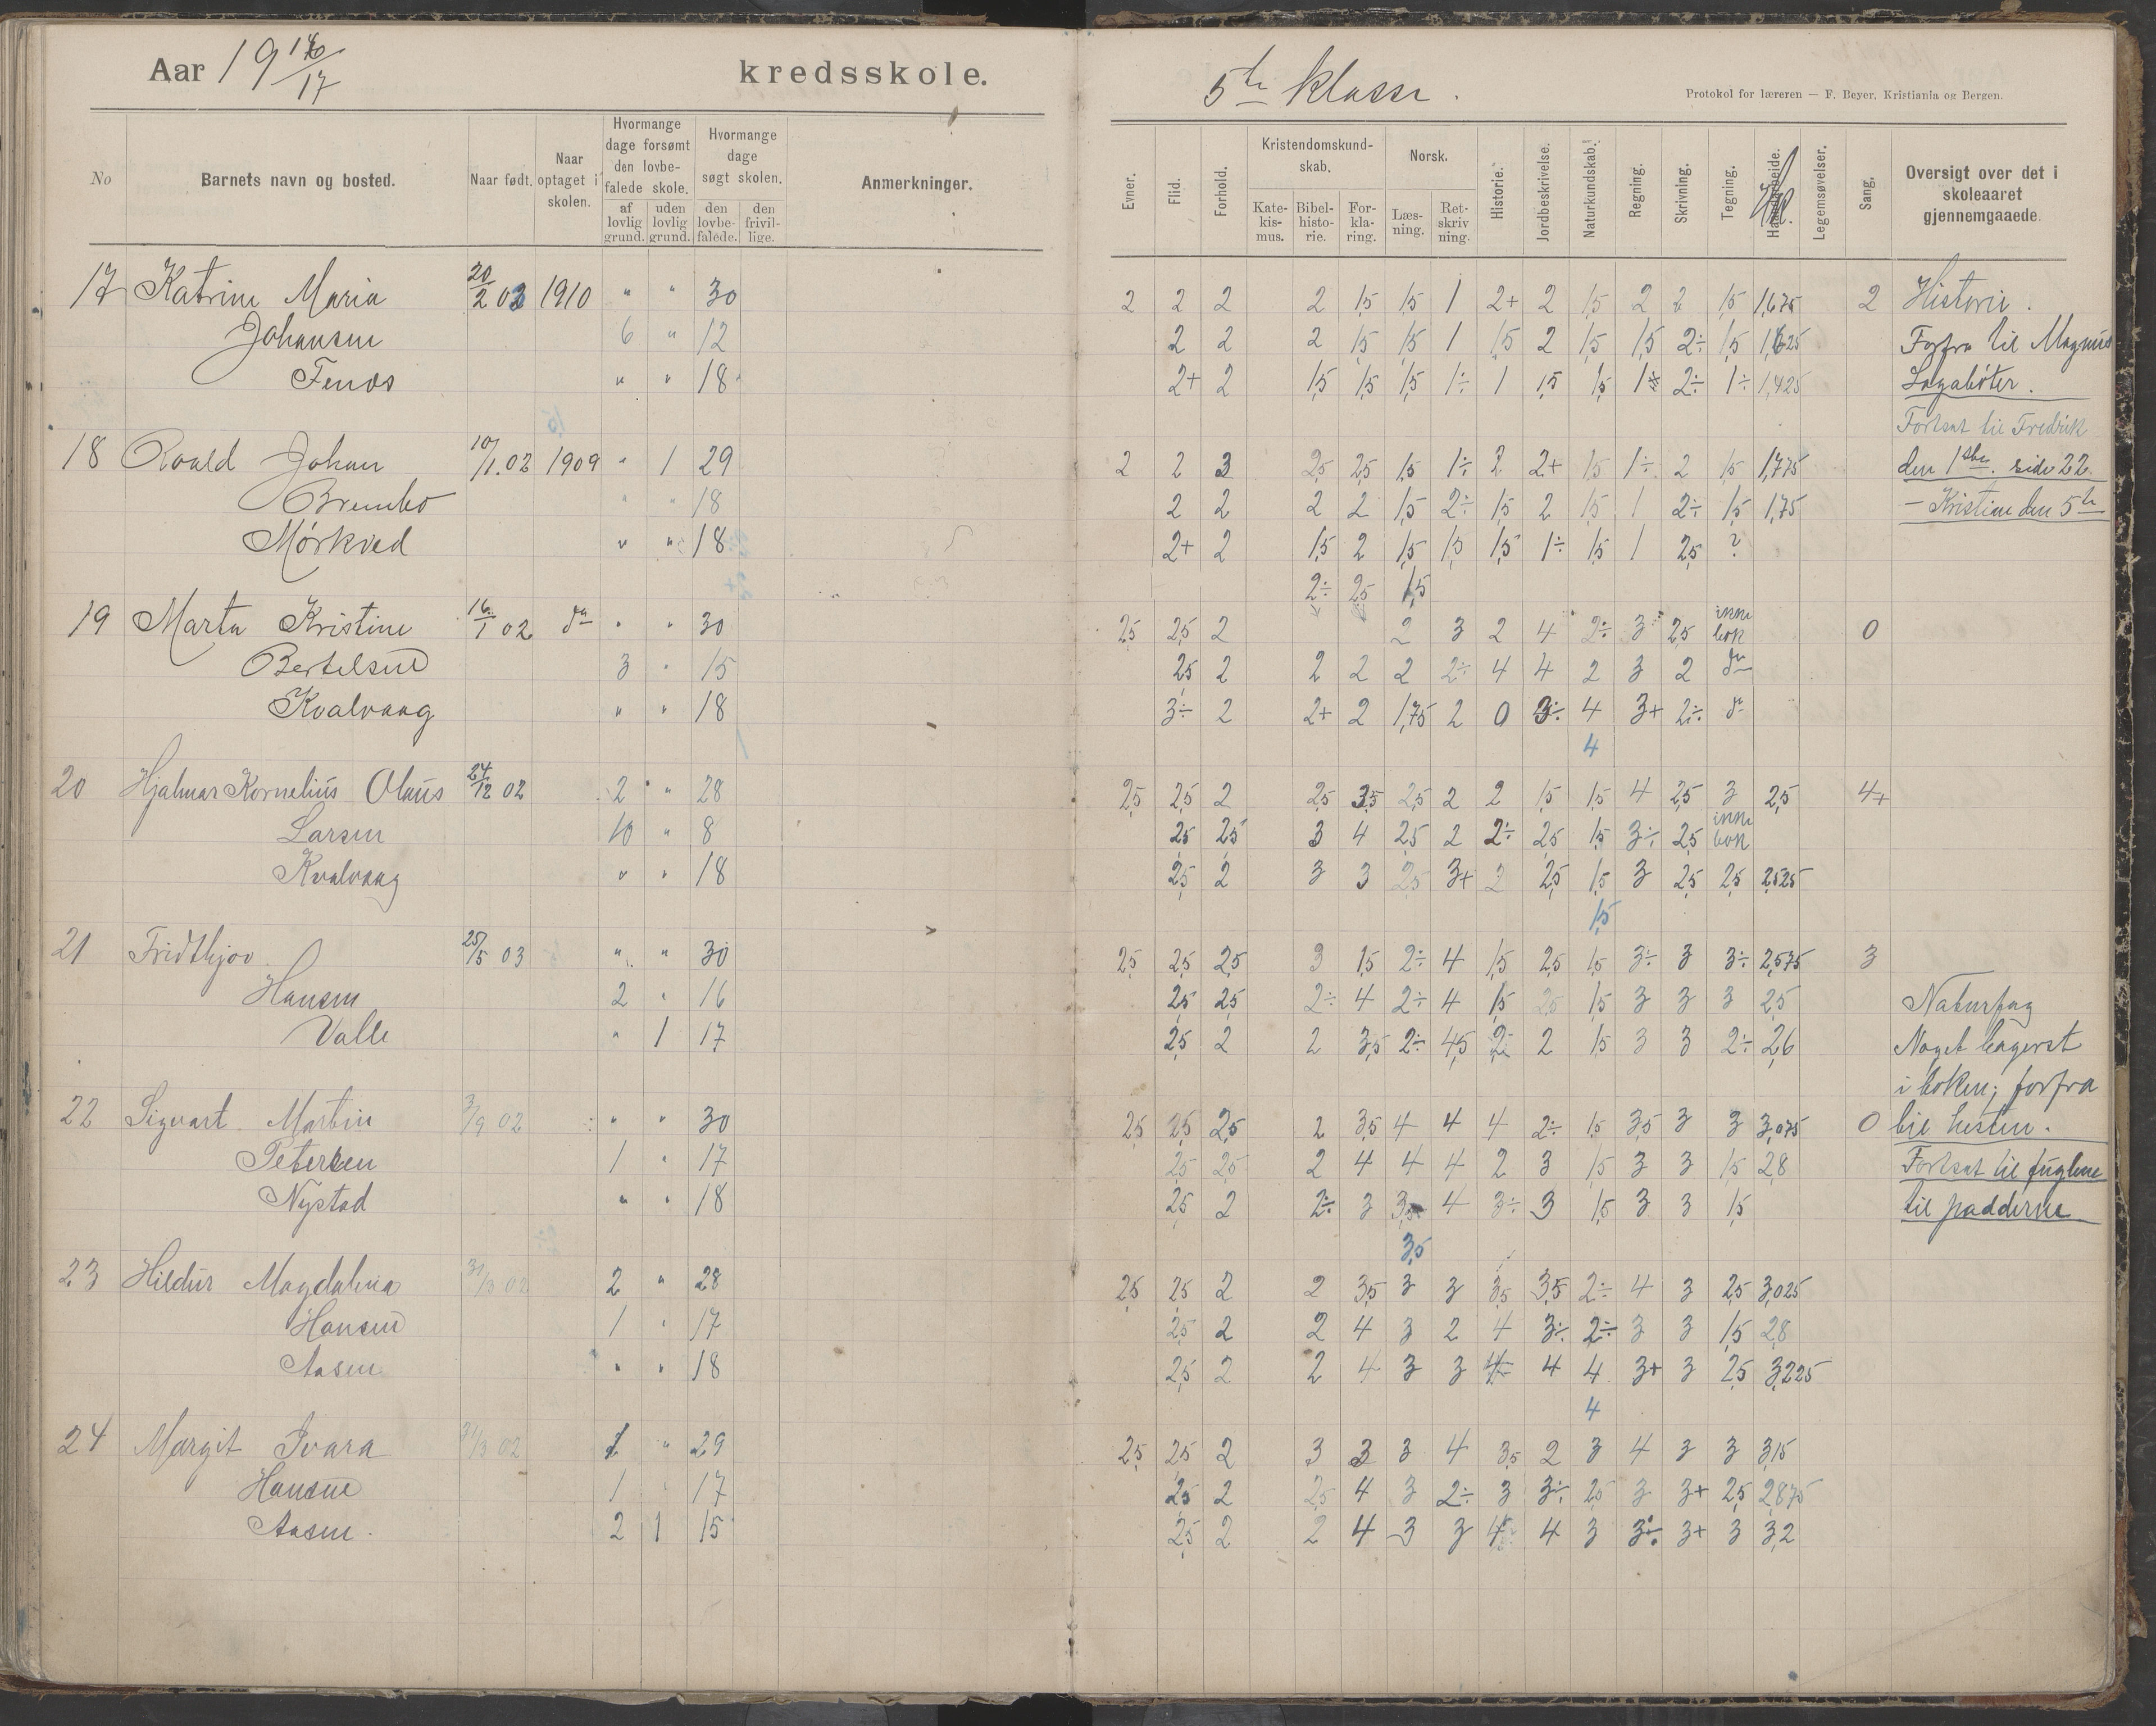 Aar 19 16/17 kredsskole. 5te Klasse.
Protokol for læreren — F. Beyer, Kristiania og Bergen.
No
Barnets navn og bosted.
Naar født.
Naar optaget i skolen.
Hvormange dage forsømt den lovbefalede skole.
af lovlig grund.
uden lovlig grund.
Hvormange dage søgt skolen.
den lovbefalede.
den frivillige.
Anmerkninger.
Evner.
Flid.
Forhold.
Kristendomskundskab.
Katekismus.
Bibelhistorie.
Forklaring.
Norsk.
Læsning.
Retskrivning.
Historie.
Jordbeskrivelse.
Naturkundskab.
Regning.
Skrivning.
Tegning.
Haandarbeide.
Legemsøvelser.
Sang.
Oversigt over det i skoleaaret gjennemgaaede.
17 Katrine Maria 20/2 03 1910 " " 30 2 2 2 2 1,5 1,5 1 2+ 2 1,5 2 2 1,5 1,675 2 Historie.
Johansen 6 " 12 2 2 2 1,5 1,5 1 1,5 2 1,5 1,5 2÷ 1,5 1,625 Forfra til Magnus
Fenes " " 18 2+ 2 1,5 1,5 1,5 1÷ 1 1,5 1,5 1÷ 2÷ 1÷ 1,425 Lagabøter.
Fortsat til Fredrik
18 Roald Johan 10/1.02 1909 " 1 29 2 2 3 2,5 2,5 1,5 1÷ 2 2+ 1,5 1÷ 2 1,5 1,775 den 1ste. side 22
Brembo " " 18 2 2 2 2 1,5 2÷ 1,5 2 1,5 1 2÷ 1,5 1,75 – Kristian den 5te
Mørkved " " 18 2+ 2 1,5 2 1,5 1,5 1,5 1÷ 1,5 1 2,5 ?
2÷ 2,5 1,5
19 Marta Kristine 16/1 02 do " " 30 2,5 2,5 2 2 3 2 4 2÷ 3 2,5 inne bok 0
Bertelsen 3 " 15 2,5 2 2 2 2 2÷ 4 4 2 3 2 do
Kvalvaag " " 18 3÷ 2 2+ 2 1,75 2 0 3÷ 4 3+ 2÷ do
4
20 Hjalmar Kornelius Olaus 24/12 02 2 " 28 2,5 2,5 2 2,5 3,5 2,5 2 2 1,5 1,5 4 2,5 3 2,5 4+
Larsen 10 " 8 2,5 2,5 3 4 2,5 2 2÷ 2,5 1,5 3÷ 2,5 inne bok
Kvalvaag " " 18 2,5 2 3 3 2,5 3+ 2 2,5 1,5 3 2,5 2,5 2,525
1,5
21 Fridthjov 25/5 03 " " 30 2,5 2,5 2,5 3 1,5 2÷ 4 1,5 2,5 1,5 3÷ 3 3÷ 2,575 3
Hansen 2 " 16 2,5 2,5 2÷ 4 2÷ 4 1,5 2,5 1,5 3 3 3 2,5 Naturfag
Valle " 1 17 2,5 2 2 3,5 2÷ 4,5 2÷ 2 1,5 3 3 2÷ 2,6 Noget bagerst
i boken; forfra
22 Sigvart Martin 3/9 02 " " 30 2,5 2,5 2,5 2 3,5 4 4 4 2÷ 1,5 3,5 3 3 3,075 0 til hesten.
Petersen 1 " 17 2,5 2,5 2 4 4 4 2 3 1,5 3 3 1,5 2,8 Fortsat til fuglene
Nystad " " 18 2,5 2 2÷ 3 3,5 4 3÷ 3 1,5 3 3 1,5 til padderne
3,5
23 Hildur Magdalena 31/3 02 2 " 28 2,5 2,5 2 2 3,5 3 3 3,5 3,5 2÷ 4 3 2,5 3,025
Hansen 1 " 17 2,5 2 2 4 3 2 4 3÷ 2÷ 3 3 1,5 2,8
Aasen " " 18 2,5 2 2 4 3 3 4÷ 4 4 3+ 3 2,5 3,225
4
24 Margit Ivara 31/3 02 1 " 29 2,5 2,5 2 3 3 3 4 3,5 2 3 4 3 3 3,15
Hansen 1 " 17 2,5 2 2,5 4 3 2÷ 3 3÷ 2,5 3 3+ 2,5 2,875
Aasen. 2 1 15 2,5 2 2 4 3 3 4 4 3 3÷ 3+ 3 3,2